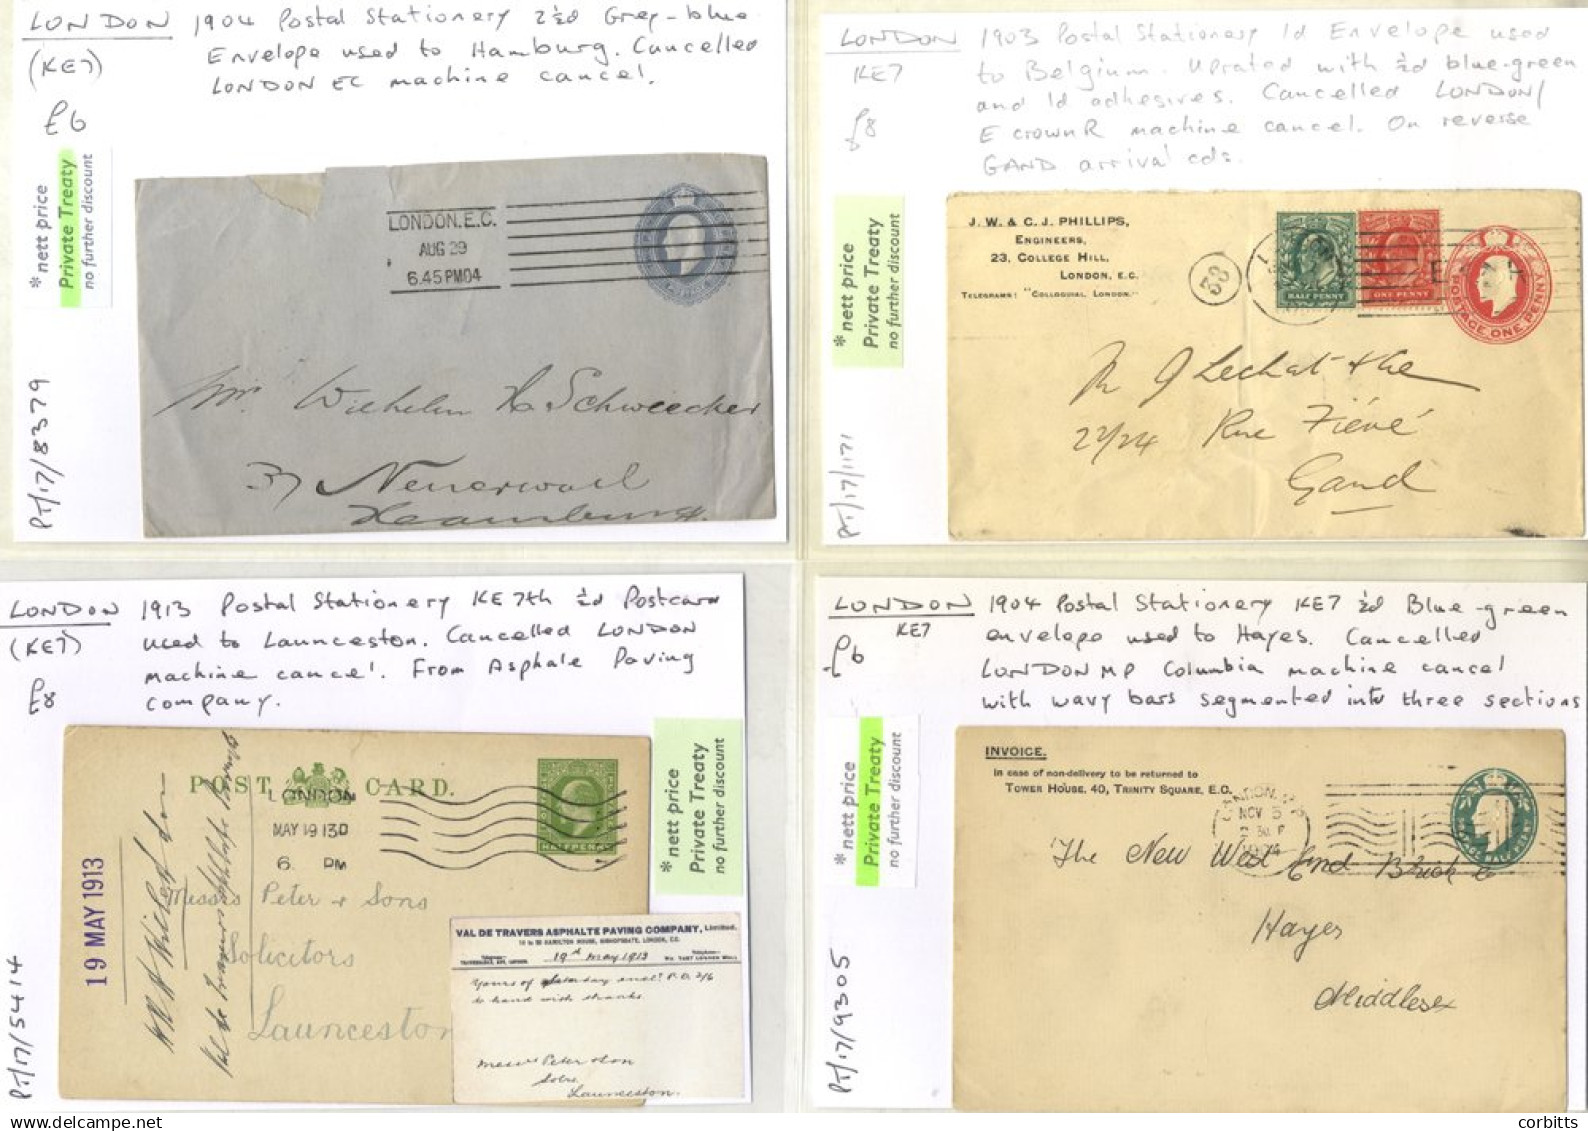 LONDON 1904 Postal Stationery 2½d Grey-blue
(KE7) Envelope used to Hamburg. Cancelled
£6 LONDON EC machine cancel.
* nett price
Private Treaty
no further discount
PT/17/8379
LONDON.E.C.
AUG 29
6.45 PM 04
Mr. Wilhelm H. Schweecker
37 Neuerwall
Hamburg.
LONDON 1903 Postal Stationery 1d Envelope used
KE7 to Belgium. Uprated with ½d blue-green
£8 and 1d adhesives. Cancelled LONDON/
E crown R machine cancel. On reverse
GAND arrival cds.
* nett price
Private Treaty
no further discount
PT/17/1171
J. W. & C. J. PHILLIPS,
ENGINEERS,
23, COLLEGE HILL,
LONDON, E.C.
TELEGRAMS: "COLLOQUIAL, LONDON."
HALF PENNY
ONE PENNY
POSTAGE ONE PENNY
J Lechat
22/24 Rue Fiévé
Gand
LONDON 1913 Postal Stationery KE7th ½d Postcard
(KE7) used to Launceston. Cancelled LONDON
£8 machine cancel. From Asphale Paving
company.
* nett price
Private Treaty
no further discount
PT/17/5414
POST CARD.
LONDON
MAY 19 13 D
6. PM
HALFPENNY
19 MAY 1913
Messrs Peter & Sons
Solicitors
Launceston
VAL DE TRAVERS ASPHALTE PAVING COMPANY, Limited.
HAMILTON HOUSE, BISHOPSGATE, LONDON, E.C.
19th May 1913
Yours of
to hand with thanks.
Messrs Peter & Son
Solrs.
Launceston.
LONDON 1904 Postal Stationery KE7 ½d Blue-green
KE7 envelope used to Hayes. Cancelled
£6 LONDON MP Columbia machine cancel
with wavy bars segmented into three sections
* nett price
Private Treaty
no further discount
PT/17/9305
INVOICE.
In case of non-delivery to be returned to
TOWER HOUSE, 40, TRINITY SQUARE, E.C.
NOV 5
The New West End Brick Co
Hayes
Middlesex
corbitts